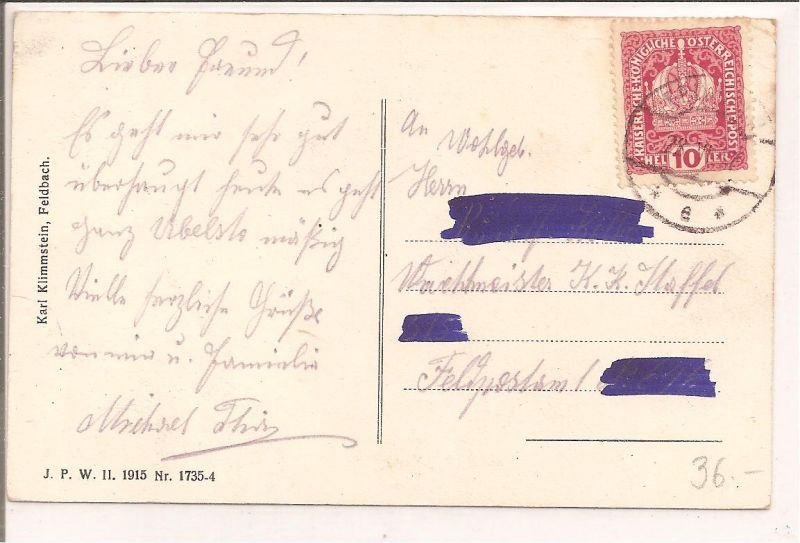 Lieber Freund!
Es geht mir sehr gut
überhaupt heute es geht
ganz Übelsto mäßig
Vielle herzliche Grüße
von mir u. Familie
Michael
An Wohlgeb.
Herrn
Wachtmeister K. K. Staffel
Feldpostamt
KAISERLICHE·KÖNIGLICHE ÖSTERREICHISCHE·POST
HELLER
10
e
Karl Klimmstein, Feldbach.
J. P. W. II. 1915 Nr. 1735-4
36.-